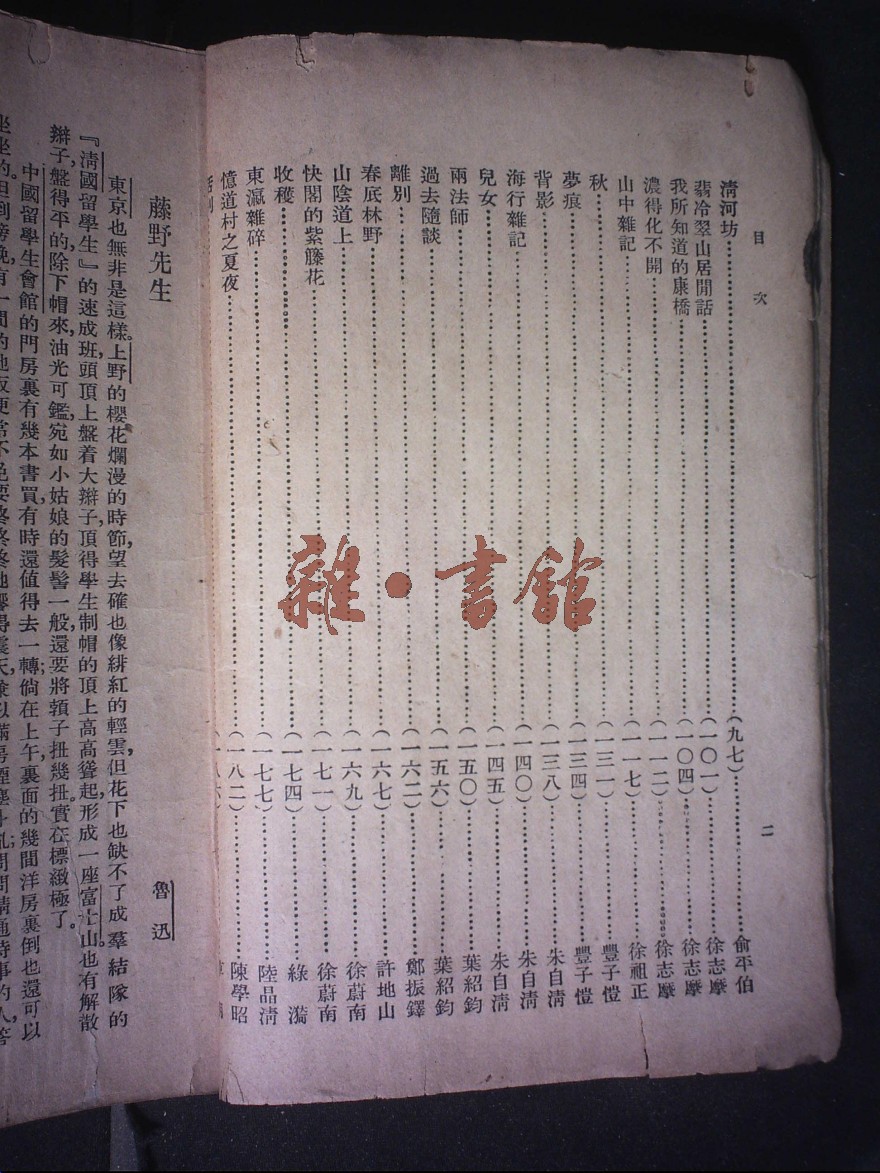 目次
二
清河坊(九七)俞平伯
翡冷翠山居閒話(一〇一)徐志摩
我所知道的康橋(一〇四)徐志摩
濃得化不開(一一二)徐志摩
山中雜記(一一七)徐祖正
秋(一三一)豐子愷
夢痕(一三四)豐子愷
背影(一三八)朱自清
海行雜記(一四〇)朱自清
兒女(一四五)朱自清
兩法師(一五〇)葉紹鈞
過去隨談(一五六)葉紹鈞
離別(一六二)鄭振鐸
春底林野(一六七)許地山
山陰道上(一六九)徐蔚南
快閣的紫籐花(一七一)徐蔚南
收穫(一七四)綠漪
東瀛雜碎(一七七)陸晶清
憶道村之夏夜(一八二)陳學昭
(一八六)
雜·書館
藤野先生
魯迅
東京也無非是這樣。上野的櫻花爛漫的時節,望去確也像緋紅的輕雲,但花下也缺不了成羣結隊的
『清國留學生』的速成班,頭頂上盤着大辮子,頂得學生制帽的頂上高高聳起,形成一座富士山。也有解散
辮子,盤得平的,除下帽來,油光可鑑,宛如小姑娘的髮髻一般,還要將頸子扭幾扭。實在標緻極了。
中國留學生會館的門房裏有幾本書買,有時還值得去一轉;倘在上午,裏面的幾間洋房裏倒也還可以
坐坐的。但到傍晚,有一間的地板便